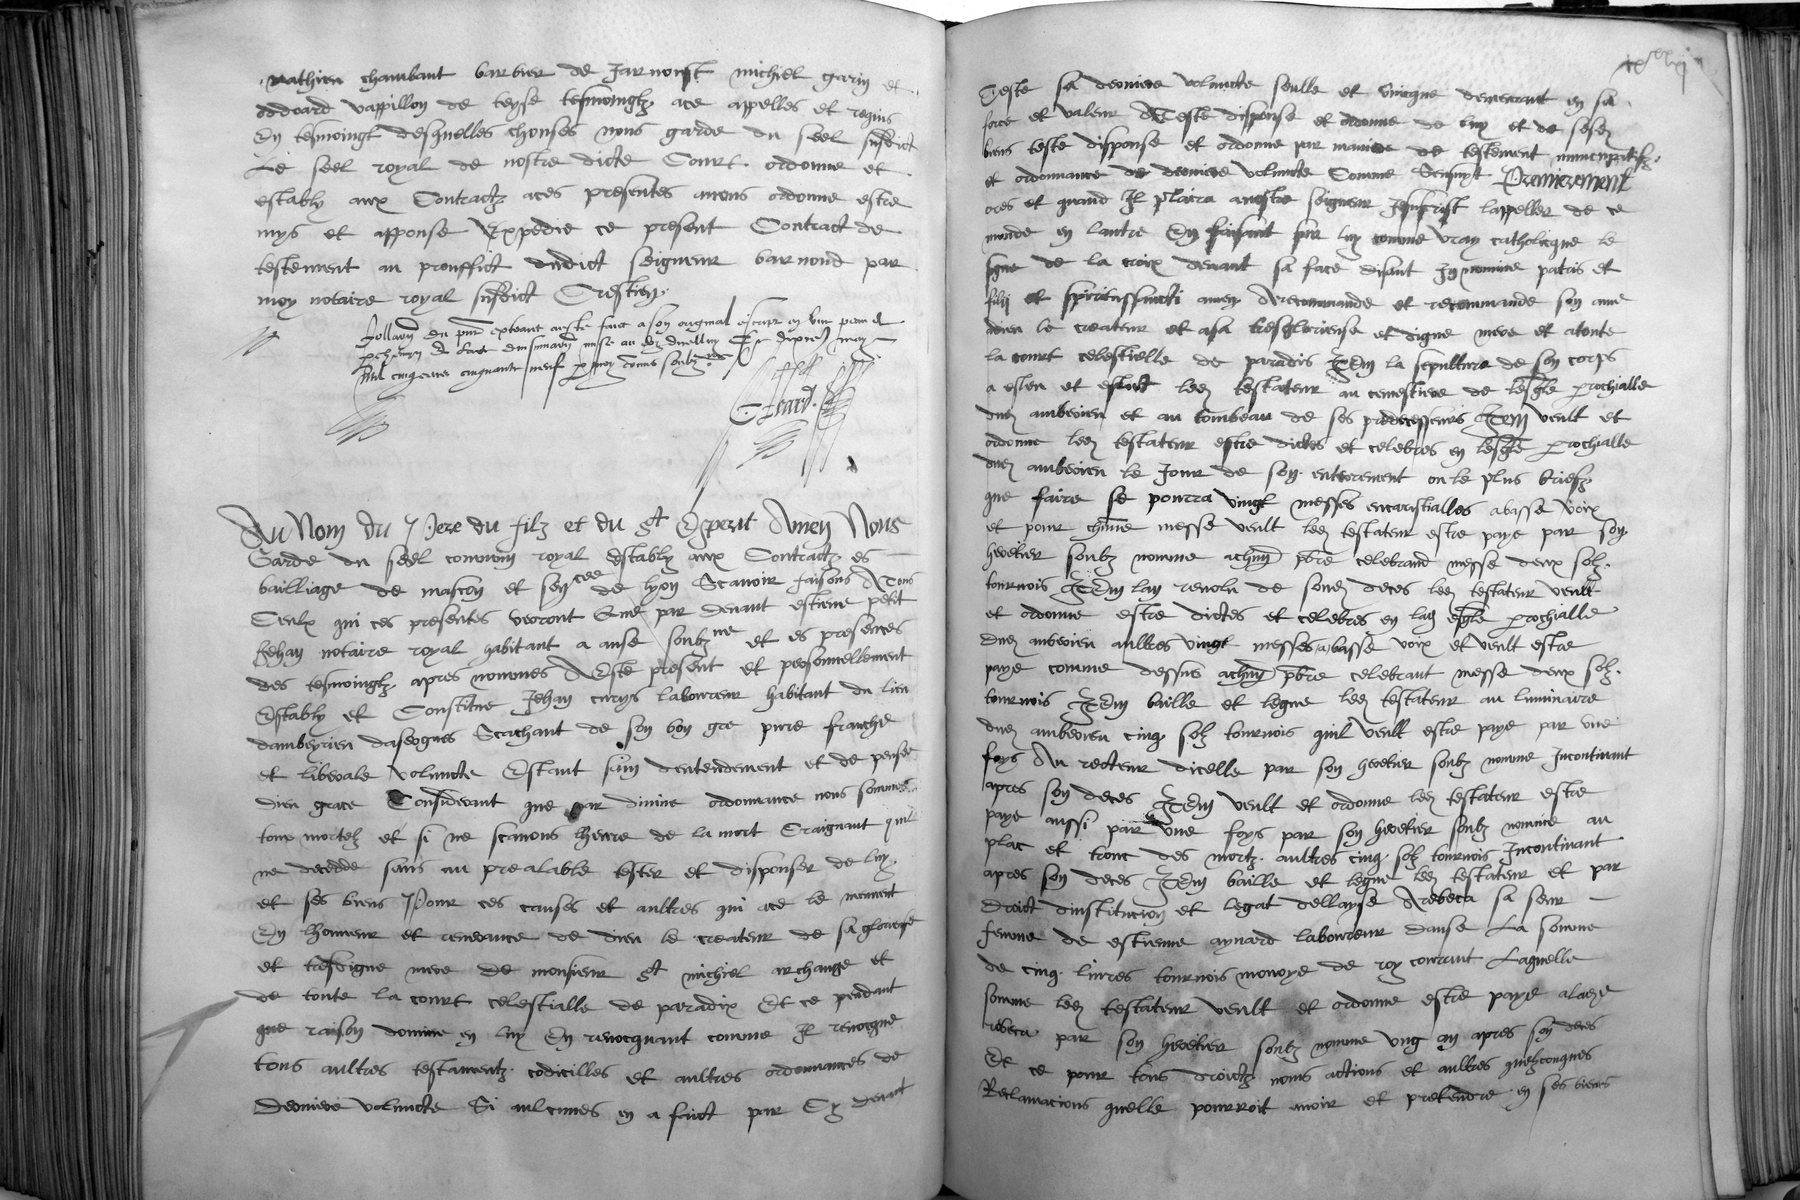 Mathieu chambaut barbier de Jarnoust michiel garin et
oddoard vappillon de teyse tesmoingtz ace appelles et requis
En tesmoingt desquelles chouses nous garde du seel susdict
Le seel royal de nostre dicte Court ordonne et
estably aux Contractz aces presentes avons ordonne estre
mys et apponse Expedie ce present Contract de
testement au prouffict dudict seigneur barnoud par
moy notaire royal susdict Crestien
Collation du pnt extraict a este faict a son original escript en une peau de
mil cinq cens cinquante neuf par moy commis soubzne
Girard
Au Nom du Pere du filz et du st Esperit Amen Nous
Garde du seel commun royal estably aux Contractz es
bailliage de mascon et seneee de lyon Scavoir faisons A tous
Ceulx qui ces presentes verront Que par devant estiene petit
Jehan notaire royal habitant a anse soubzne et es presences
des tesmoingtz apres nommes A este present et personnellement
Estably et Constitue Jehan curys laboureur habitant du lieu
dambeyrien daseogues Scachant de son bon gre pure franche
et liberale volunte Estant sain dentendement et de pensee
dieu grace Considerant que par divine ordonnance nous sommes
tous mortelz et si ne scavons lheure de la mort Craignant quil
ne decedde sans au prealable tester et disponser de luy
et ses biens Pour ces causes et aultres qui ace le meuvent
En lhonneur et reverance de dieu le createur de sa glorieuse
et tresdigne mere de monsieur st michiel archange et
de toute la court celestialle de paradix Et ce pendant
que raison domine en luy En revocquant comme Il revocque
tous aultres testamentz codicilles et aultres ordonnances de
Derniere volunte Si aulcunes en a faict par Cy devant
Ceste sa derniere volunte seulle et unicque demeurant en sa
force et valeur A Teste disponse et ordonne de luy et de sesd
biens teste disponse et ordonne par maniere de testement nuncupatifz
et ordonnance de derniere volunte Comme Sensuyt Premierement
ores et quand Il plaira a nostre seigneur Jesucrist lappeller de ce
monde en lautre En faisant sur luy comme vray catholicque le
signe de la croix devant sa face disant In nomine patris et
filij et spiritussancti amen A recommande et recommande son ame
a dieu le createur et asa tresglorieuse et digne mere et atoute
la court celestielle de paradis ITem la sepulture de son corps
a esleu et eslist led testateur au cemestiere de lesgle parochialle
dud ambeirien et au tombeau de ses predecesseurs ITem veult et
ordonne led testateur estre dictes et celebres en lesgle parochialle
dud ambeirien le Jour de son enterrement ou le plus briefz
que faire se pourra vingt messes encaristialles abasse voix
et pour chune messe veult led testateur estre paye par son
heretier soubz nomme achun pbre celebrand messe deux solz
tournois ITem lan revolu de soned deces led testateur veult
et ordonne estre dictes et celebres en lad esgle parochialle
dud ambeirien aultres vingt messes a basse voix et veult estre
paye comme dessus achun pbre celebrant messe deux solz
tournois ITem baille et legue led testateur au luminaire
dud ambeirien cinq solz tournois quil veult estre paye par une
foys Au recteur dicelle par son heretier soubz nomme Incontinant
apres son deces ITem veult et ordonne led testateur estre
paye aussi par une foys par son heretier soubz nomme au
plac et tronc des mortz aultres cinq solz tournois Incontinant
apres son deces ITem baille et legue led testateur et par
Droict dinstitucion et legat dellaysse A rebeca sa seur
femme de estienne aynard laboureur danse La somme
de cinq livres tournois monoye de roy courrant Laquelle
somme led testateur veult et ordonne estre paye aladite
rebeca par son heretier soubz nomme ung an apres son deces
Et ce pour tous droictz noms actions et aultres quelzconques
Reclamacions quelle pourroit avoir et pretendre en ses biens